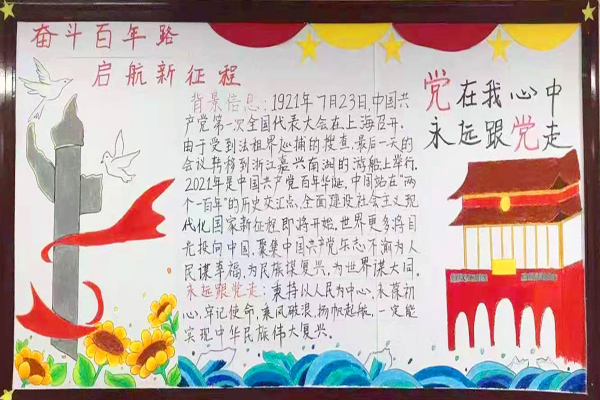 奋斗百年路
启航新征程
背景信息：1921年7月23日,中国共
产党第一次全国代表大会在上海召开,
由于受到法租界巡捕的搜查,最后一天的
会议转移到浙江嘉兴南湖的游船上举行。
2021年是中国共产党百年华诞。中国站在"两
个一百年"的历史交汇点,全面建设社会主义现
代化国家新征程即将开始。世界更多将目
光投向中国,聚集中国共产党矢志不渝为人
民谋幸福,为民族谋复兴,为世界谋大同。
永远跟党走：秉持以人民为中心,永葆初
心,牢记使命,乘风破浪,扬帆起航,一定能
实现中华民族伟大复兴。
党在我心中
永远跟党走